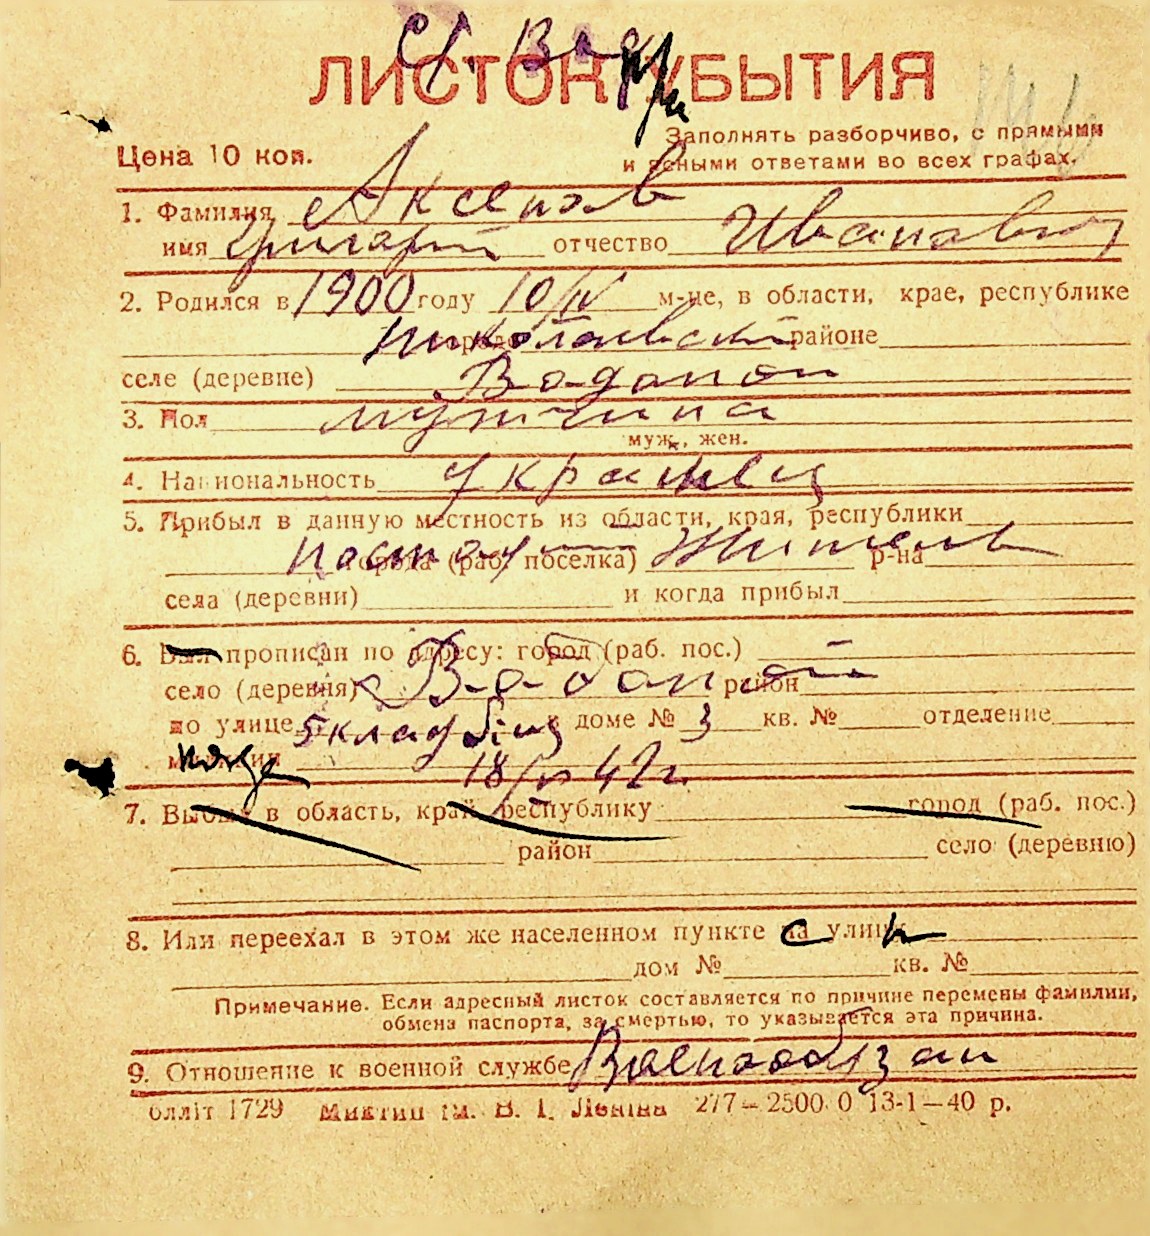 ст. Вод
ЛИСТОК УБЫТИЯ
Цена 10 коп.
Заполнять разборчиво, с прямыми
и ясными ответами во всех графах.
1. Фамилия Аксенов
имя Григорий отчество Иванович
2. Родился в 1900 году 10/IV м-це, в области, крае, республике
Николаевской городе районе
селе (деревне) Водопой
3. Пол мужчина
муж., жен.
4. Национальность украинец
5. Прибыл в данную местность из области, края, республики
города (раб. поселка) житель р-на
села (деревни) и когда прибыл
6. Был прописан по адресу: город (раб. пос.)
село (деревня) Водопой район
по улице доме № 3 кв. № отделение
милиции 42 г.
7. Выбыл в область, край, республику город (раб. пос.)
район село (деревню)
8. Или переехал в этом же населенном пункте на улицу
дом № кв. №
Примечание. Если адресный листок составляется по причине перемены фамилии,
обмена паспорта, за смертью, то указывается эта причина.
9. Отношение к военной службе Военнообязан
олліт 1729 277—2500.0 13-1—40 р.